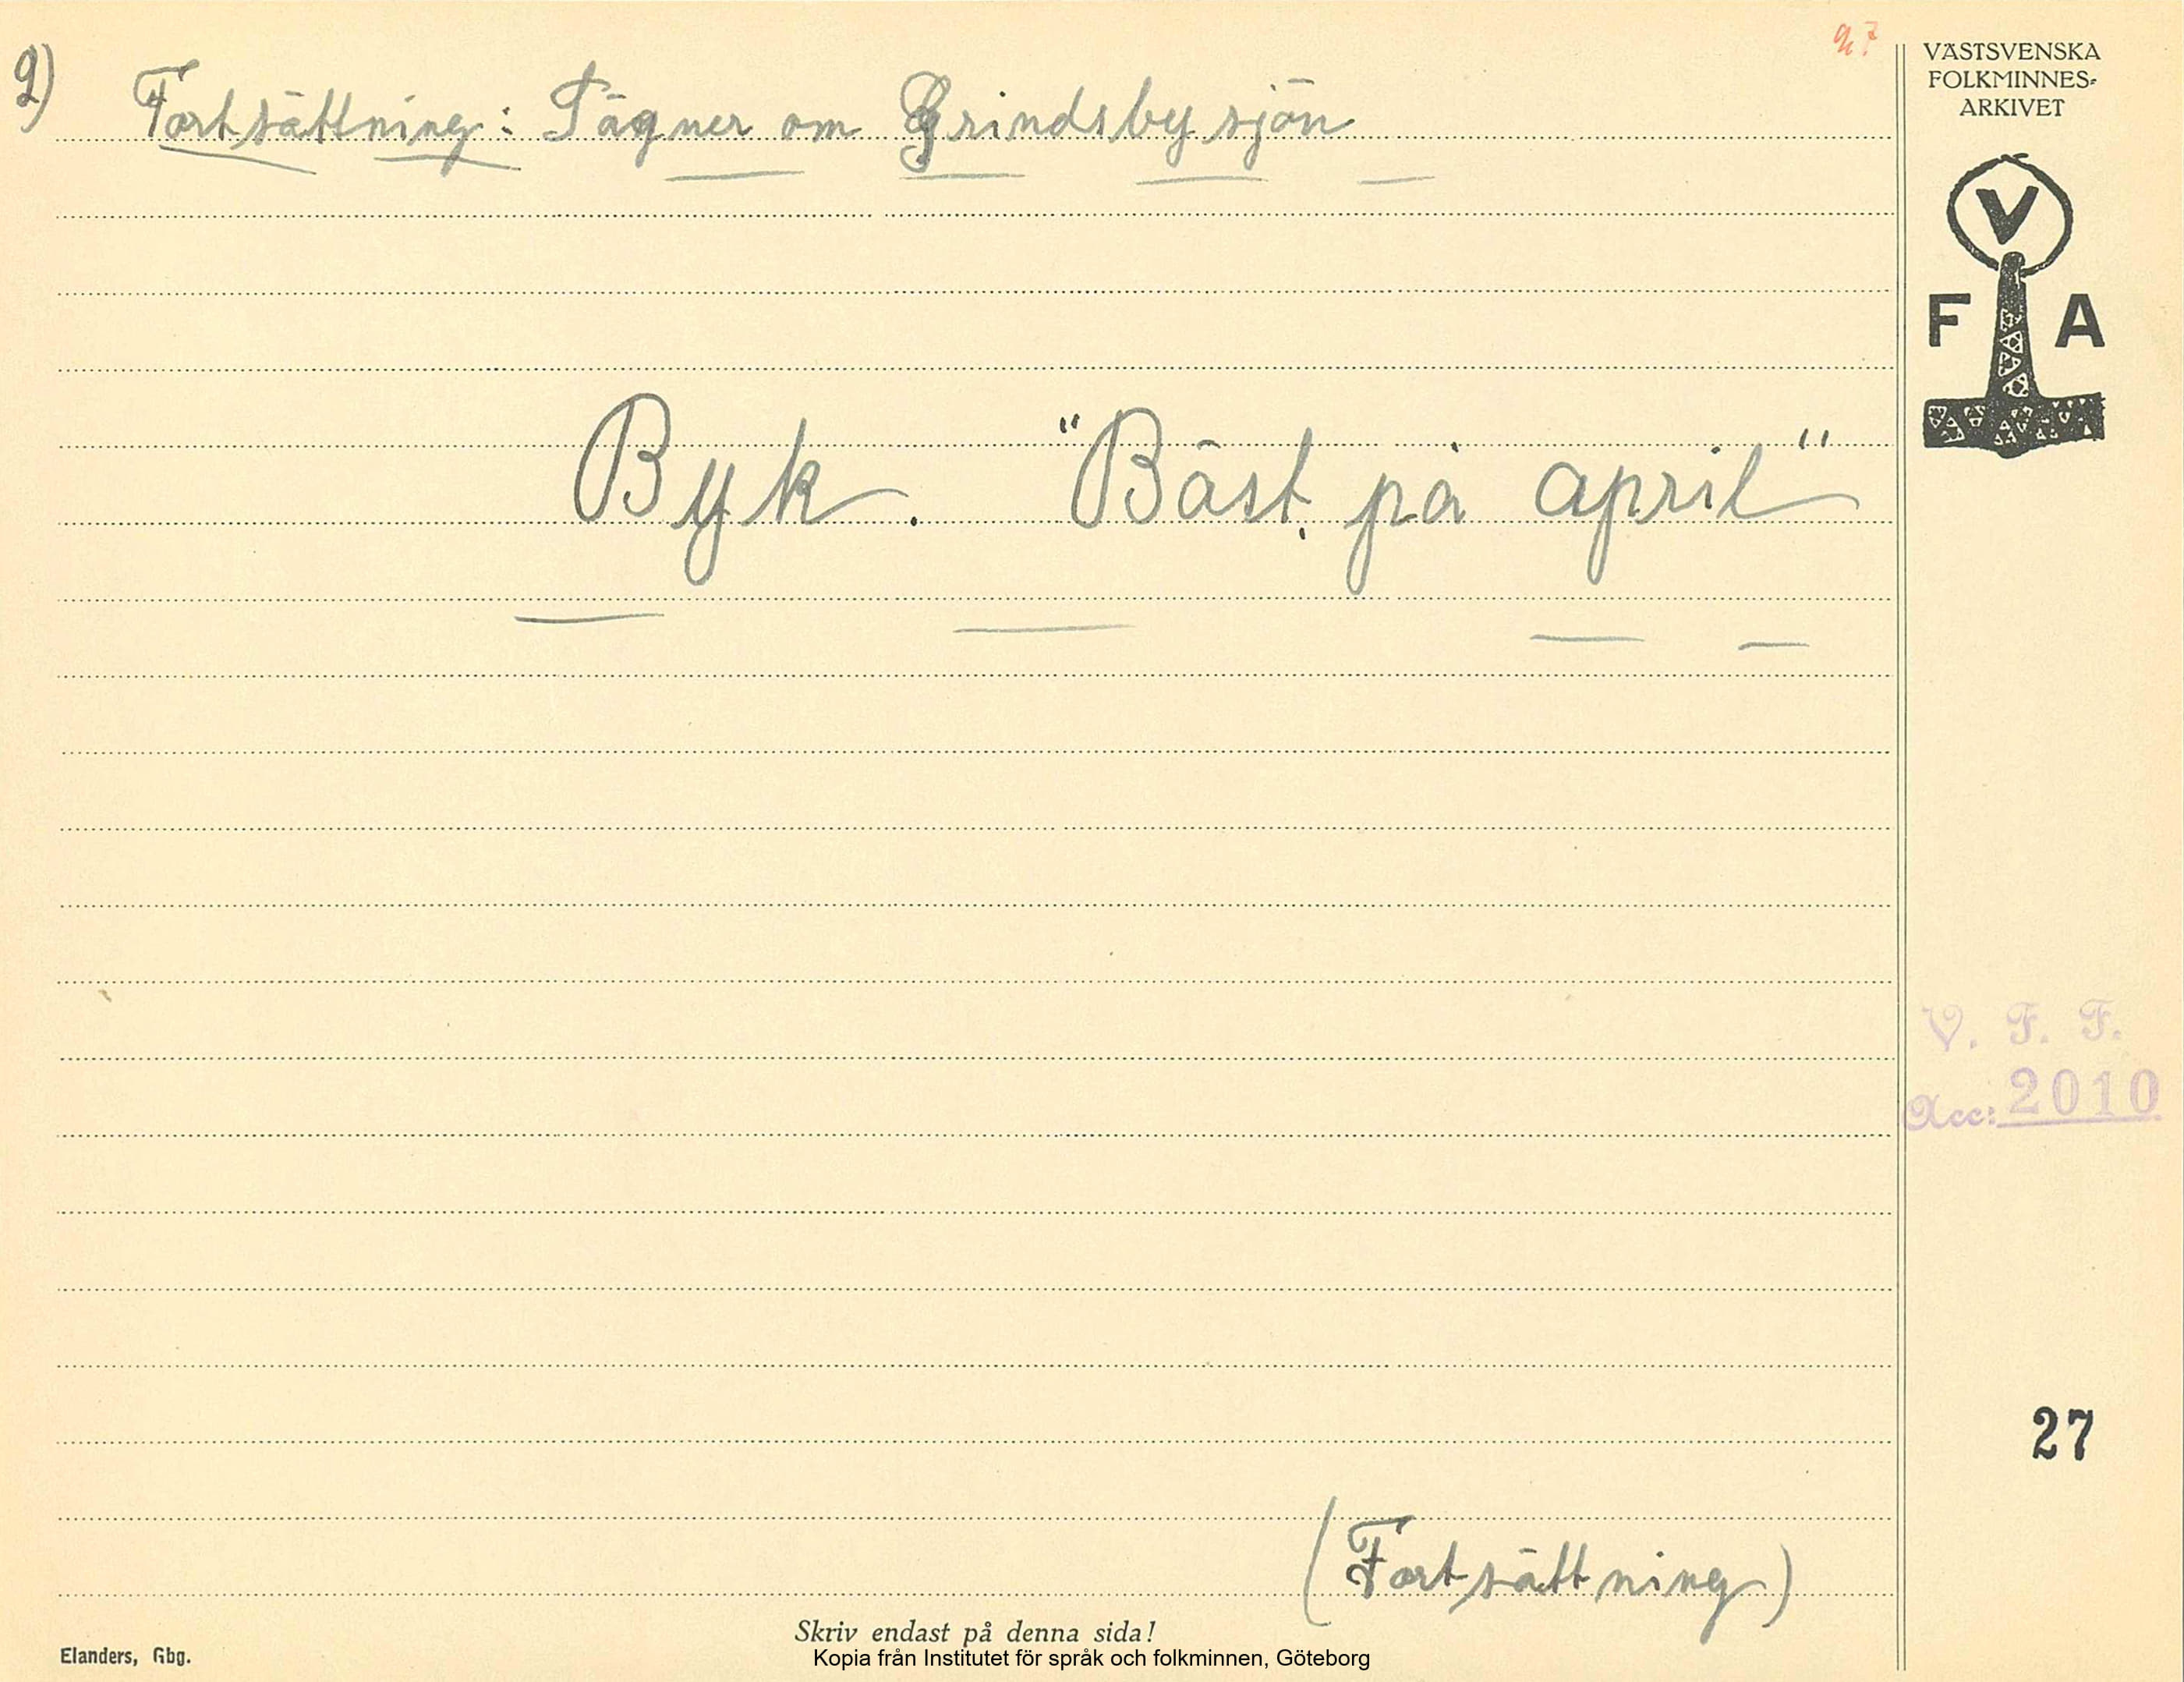 2)
Fortsättning: Sägner om Grindsbysjön
Byk. "Bäst på april"
(Fortsättning)
Skriv endast på denna sida!
Elanders, Gbg.
Kopia från Institutet för språk och folkminnen, Göteborg
VÄSTSVENSKA
FOLKMINNES-
ARKIVET
V
F A
V. F. F.
Acc: 2010
27